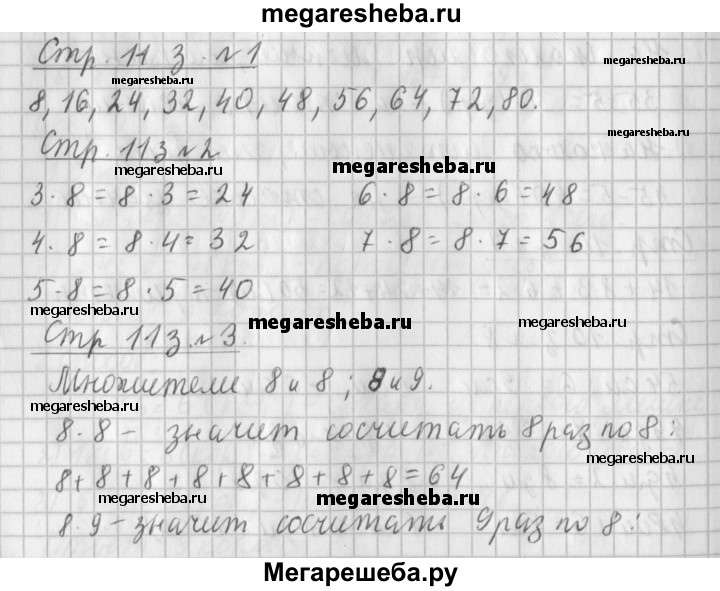 megaresheba.ru
Стр. 11 з. №1
megaresheba.ru
megaresheba.ru
8, 16, 24, 32, 40, 48, 56, 64, 72, 80.
megaresheba.ru
Стр. 11 з №2
megaresheba.ru
megaresheba.ru
3 · 8 = 8 · 3 = 24 6 · 8 = 8 · 6 = 48
4 · 8 = 8 · 4 = 32 7 · 8 = 8 · 7 = 56
5 · 8 = 8 · 5 = 40
megaresheba.ru
megaresheba.ru
megaresheba.ru
Стр 11 з. №3.
Множители 8 и 8; 8 и 9.
megaresheba.ru
8 · 8 – значит сосчитать 8 раз по 8:
megaresheba.ru
8 + 8 + 8 + 8 + 8 + 8 + 8 + 8 = 64
megaresheba.ru
megaresheba.ru
8 · 9 – значит сосчитать 9 раз по 8:
Мегарешеба.ру